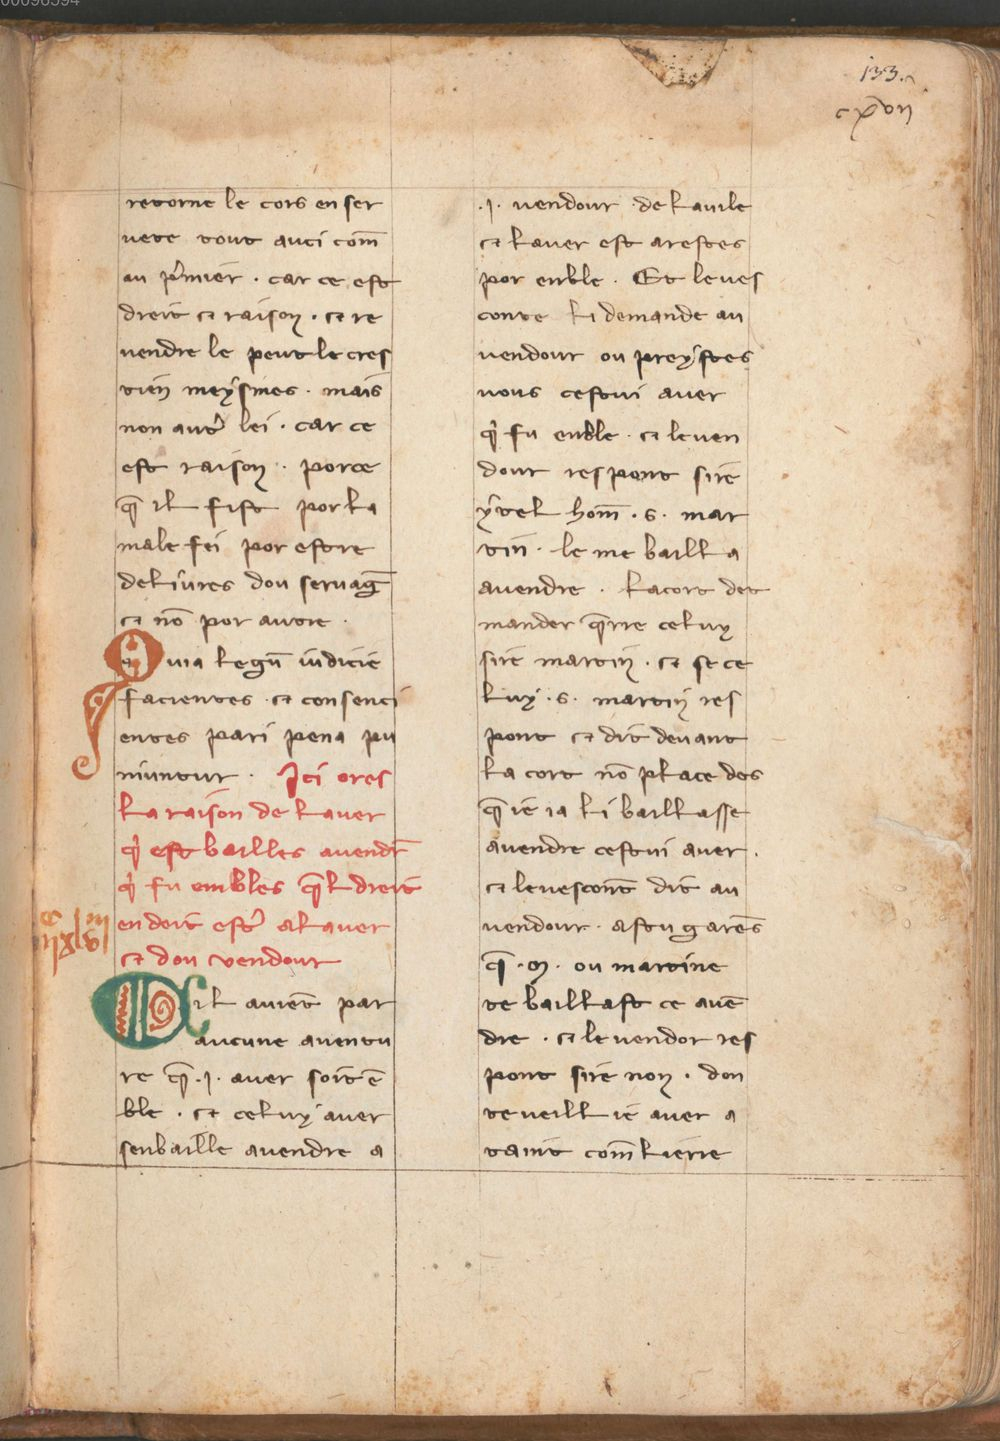 133.
retorne le cors en ser
vete tout auci com̄
au p'mier . car ce est
dreit et raison . et re
vendre le peut le cres
tien meysmes . mais
non aut' lei . car ce
est raison . porce
q̄ il fist por la
male fei por estre
delivres dou servaḡ
et nō por autre .
Quia legū iudicie
facientes . et consenci
entes pari pena pu
niuntur . Ici ores
la raison de laver
q' est bailles a vendr̄
q' fu embles q̄l dreit
en doit est' al aver
et dou vendour
il avient par
aucune aventu
re q̄ .j. aver soit ē
ble . et celuy aver
senbaille a vendre a
.j. vendour . de la vile
et laver est arestes
por enble . Et le ves
conte li demande au
vendour ou preystes
vous cestui aver
q' fu enble . et le ven
dour respont sire
ytel hom̄ . s . mar
tin . le me bailla
a vendre . la cort det
mander q̄rre celuy
sire martin . et se ce
luy . s . martin res
pont et dit devant
la cort nō place des
q̄ ie ia li baillasse
a vendre cestui aver .
et le vescont dit au
vendour . as tu garens
q̄ . m . ou martine
te baillast ce a vē
dre . et le vendor res
pont sire non . don
te veill ie aver a
taint com̄ lierre